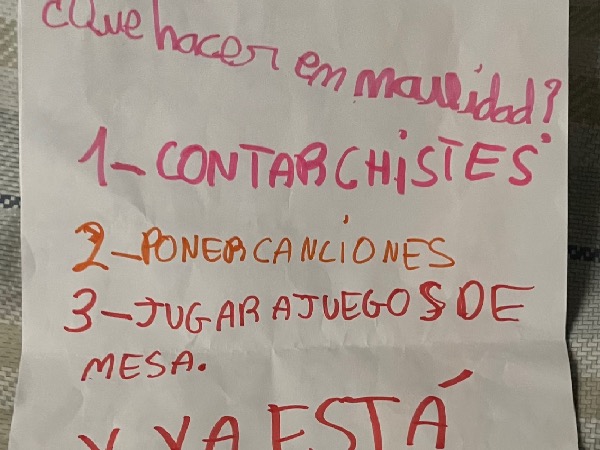 ¿Que hacer en mavidad?
1-CONTAR CHISTES
2-PONER CANCIONES
3-JUGAR A JUEGOS DE
MESA.
Y YA ESTÁ